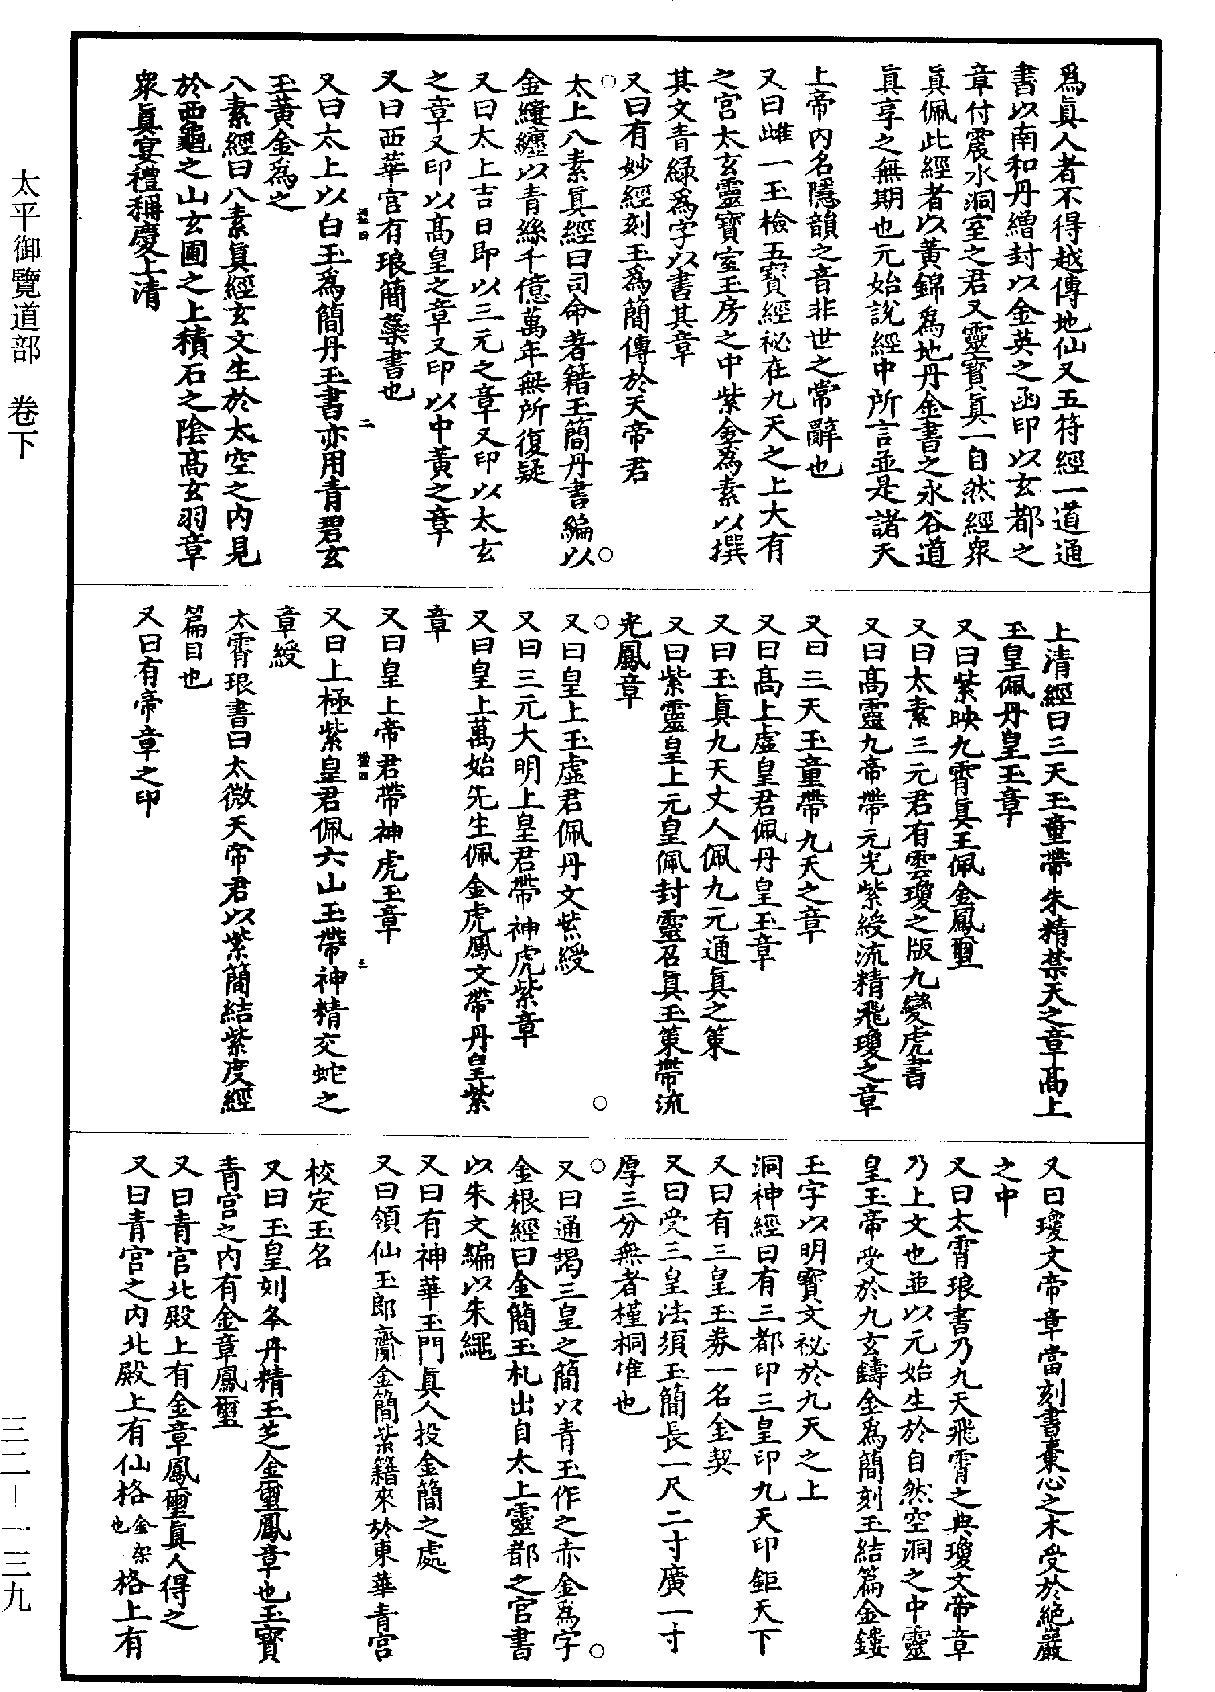 爲眞人者不得越傳地仙又五符經一道通
書以南和丹繒封以金英之函印以玄都之
章付震水洞室之君又靈寳眞一自然經衆
眞佩此經者以黃錦爲地丹金書之永谷道
眞享之無期也元始說經中所言並是諸天
上帝內名隱韻之音非世之常辭也
又曰雌一玉檢五寳經祕在九天之上大有
之宮太玄靈寳室玉房之中紫金為素以撰
其文青綠爲字以書其章
又曰有妙經刻玉爲簡傳於天帝君
太上八素眞經曰司命著籍玉簡丹書編以
金縷纏以青絲千億萬年無所復疑
又曰太上吉日即以三元之章又印以太玄
之章又印以高皇之章又印以中黃之章
又曰西華宮有琅簡蘂書也
又曰太上以白玉爲簡丹玉書亦用青碧玄
玉黃金為之
八素經曰八素眞經玄文生於太空之內見
於西龜之山玄圃之上積石之陰高玄羽章
衆眞宴禮稱慶上清
上清經曰三天玉童帶朱精禁天之章高上
玉皇佩丹皇玉章
又曰紫映九霄眞王佩金鳳璽
又曰太素三元君有雲瓊之版九變虎書
又曰高靈九帝帶元光紫綬流精飛瓊之章
又曰三天玉童帶九天之章
又曰高上虛皇君佩丹皇玉章
又曰玉眞九天丈人佩九元通眞之策
又曰紫靈皇上元皇佩封靈召眞玉策帶流
光鳳章
又曰皇上玉虛君佩丹文紫綬
又曰三元大明上皇君帶神虎紫章
又曰皇上萬始先生佩金虎鳳文帶丹皇紫
章
又曰皇上帝君帶神虎玉章
又曰上極紫皇君佩六山玉帶神精交蛇之
章綬
太霄琅書曰太微天帝君以紫簡結紫度經
篇目也
又曰有帝章之印
又曰瓊文帝章當刻書棗心之木受於絕巖
之中
又曰太霄琅書乃九天飛霄之典瓊文帝章
乃上文也並以元始生於自然空洞之中靈
皇玉帝受於九玄鑄金爲簡刻玉結篇金鏤
玉字以明寳文祕於九天之上
洞神經曰有三都印三皇印九天印鉅天下
又曰有三皇玉券一名金契
又曰受三皇法須玉簡長一尺二寸廣一寸
厚三分無者槿桐准也
又曰通謁三皇之簡以青玉作之赤金爲字
金根經曰金簡玉札出自太上靈都之宮書
以朱文編以朱繩
又曰有神華玉門眞人投金簡之處
又曰領仙玉郎齎金簡紫籍來於東華青宮
校定玉名
又曰玉皇刻夲丹精玉芝金璽鳳章也玉寳
青宮之內有金章鳳璽
又曰青宮北殿上有金章鳳璽眞人得之
又曰青宮之內北殿上有仙格金架也格上有
太平御覽道部　卷下
三二—一三九